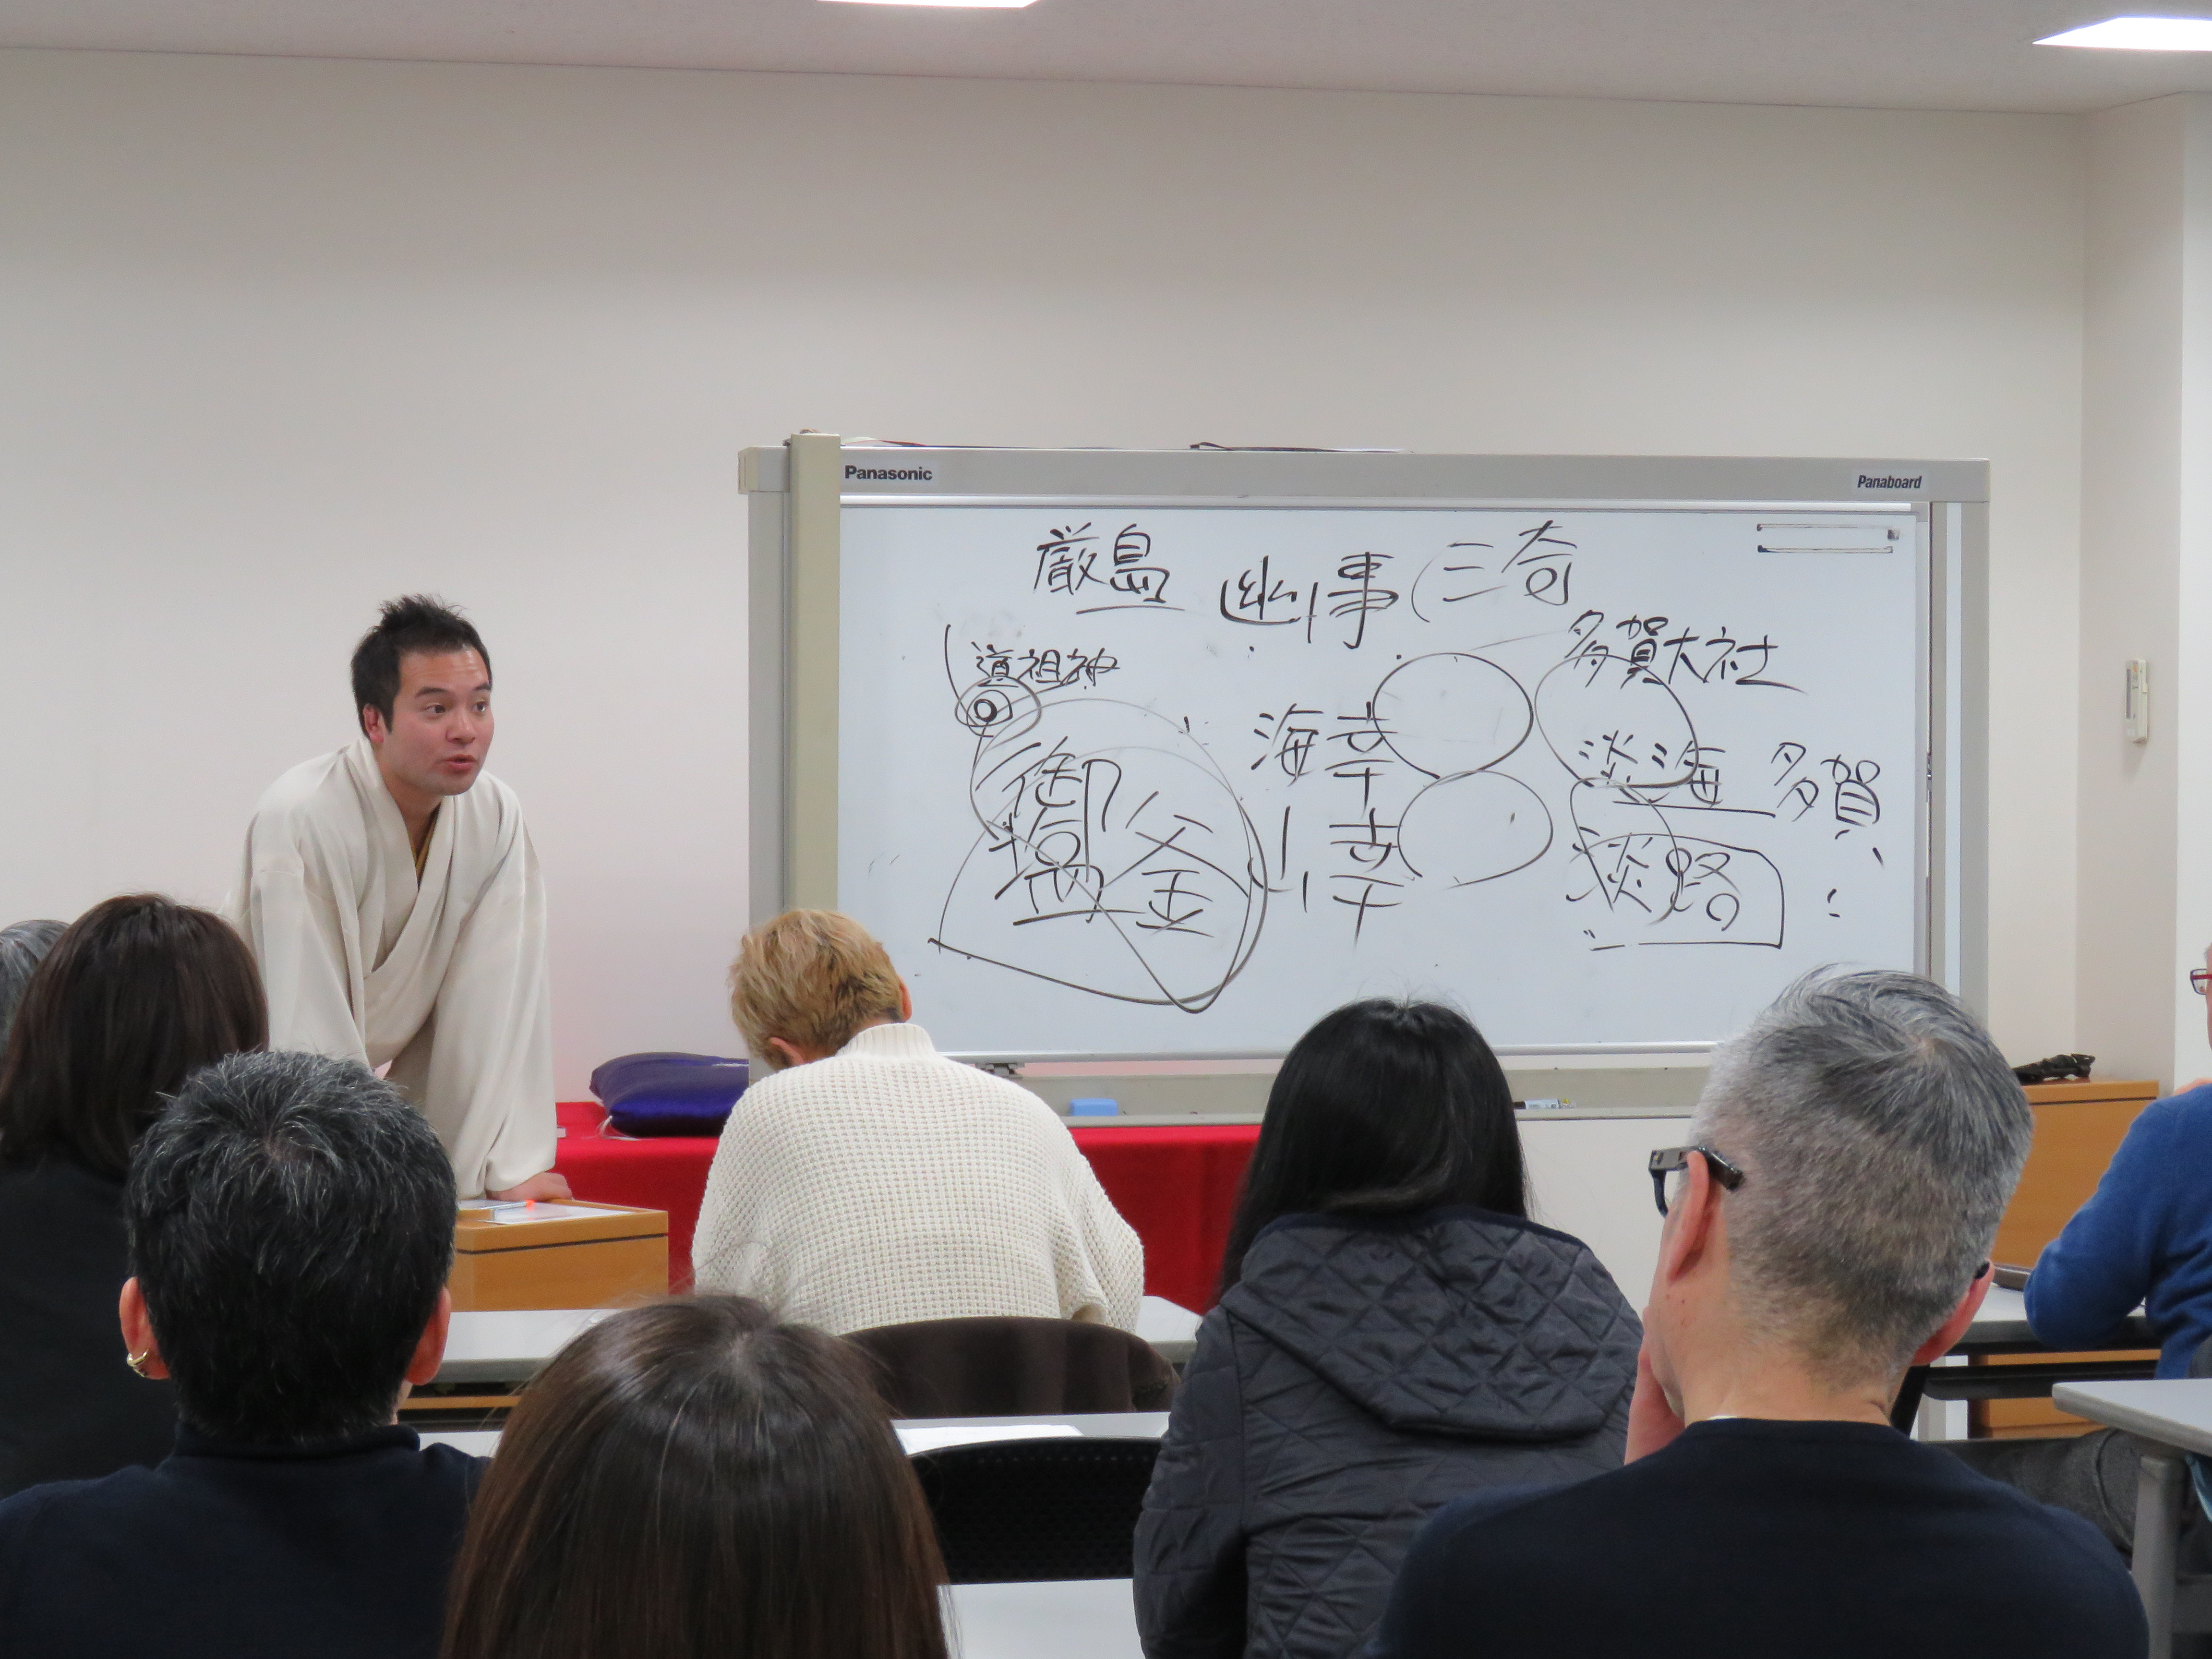 Panasonic
Panaboard
厳島
幽事(三奇
道祖神
多賀大社
海幸
淡海 多賀
御
塩釜
山幸
淡路